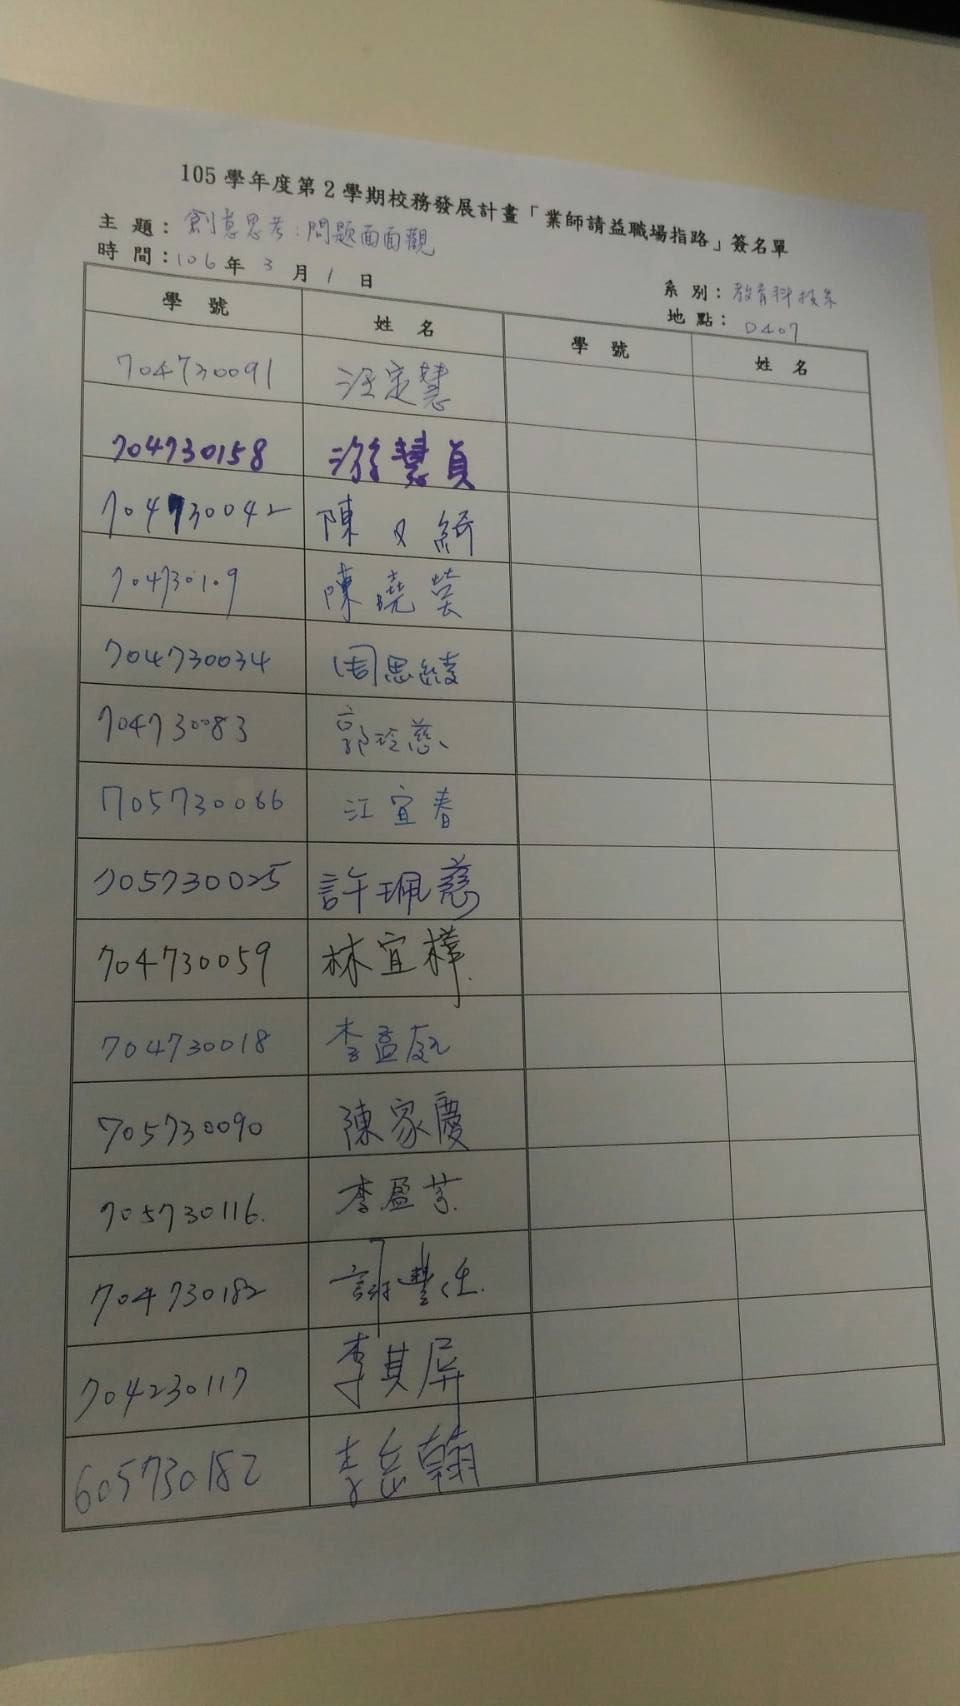 105 學年度第 2 學期校務發展計畫「業師請益職場指路」簽名單
主 題：創意思考：問題面面觀
時 間：106 年 3 月 1 日
系 別：教育科技系
地 點：D407
學 號 姓 名 學 號 姓 名
704730091 汪定慧
704730158 游慧貞
704730042 陳又綺
704730109 陳曉芸
704730034 周思綾
704730083 郭玲慈
705730066 江宜春
705730025 許珮慈
704730059 林宜樺
704730018 李孟
705730090 陳家慶
705730116. 李盈芳
704730182 謝豐任
704230117 李其屏
605730182 李岳翰